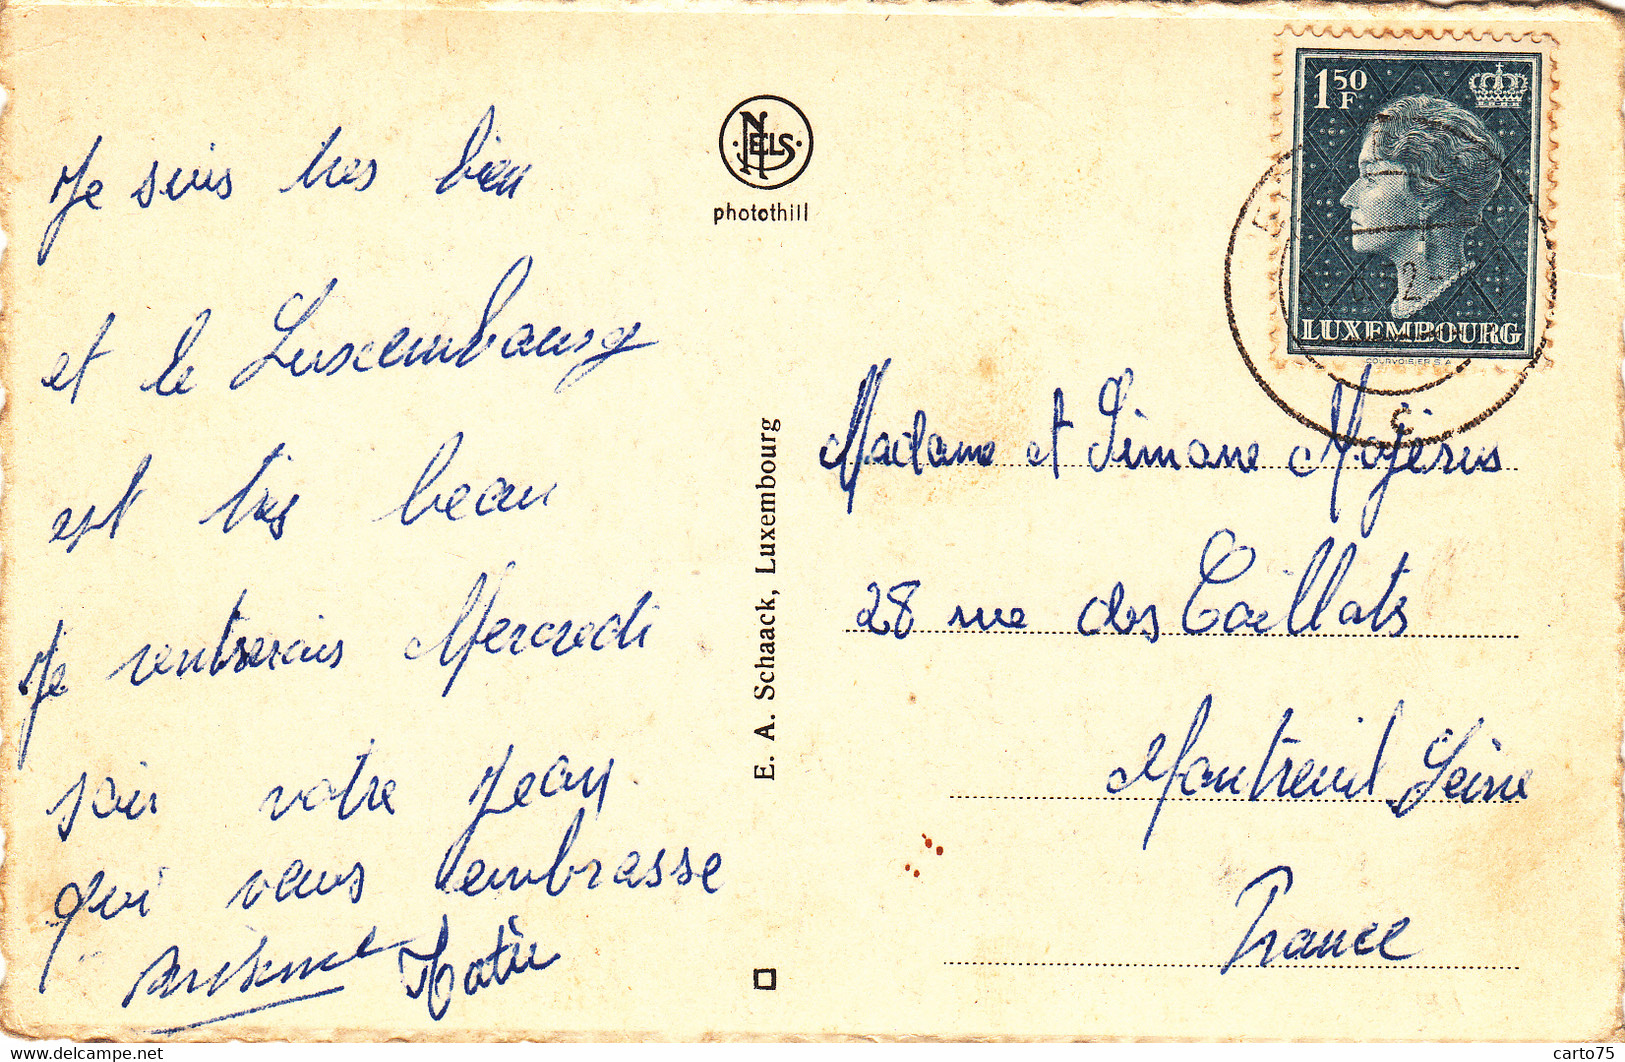 Je suis tres bien
et le Luxembourg
est très beau
Je rentrerais Mercredi
soir votre Jean
qui vous embrasse
NELS
photothill
E. A. Schaack, Luxembourg
1 50 F
LUXEMBOURG
COURVOISIER S.A.
c
Madame et Simone Majérus
28 rue des Caillots
Montreuil Seine
France
delcampe.net
carto75